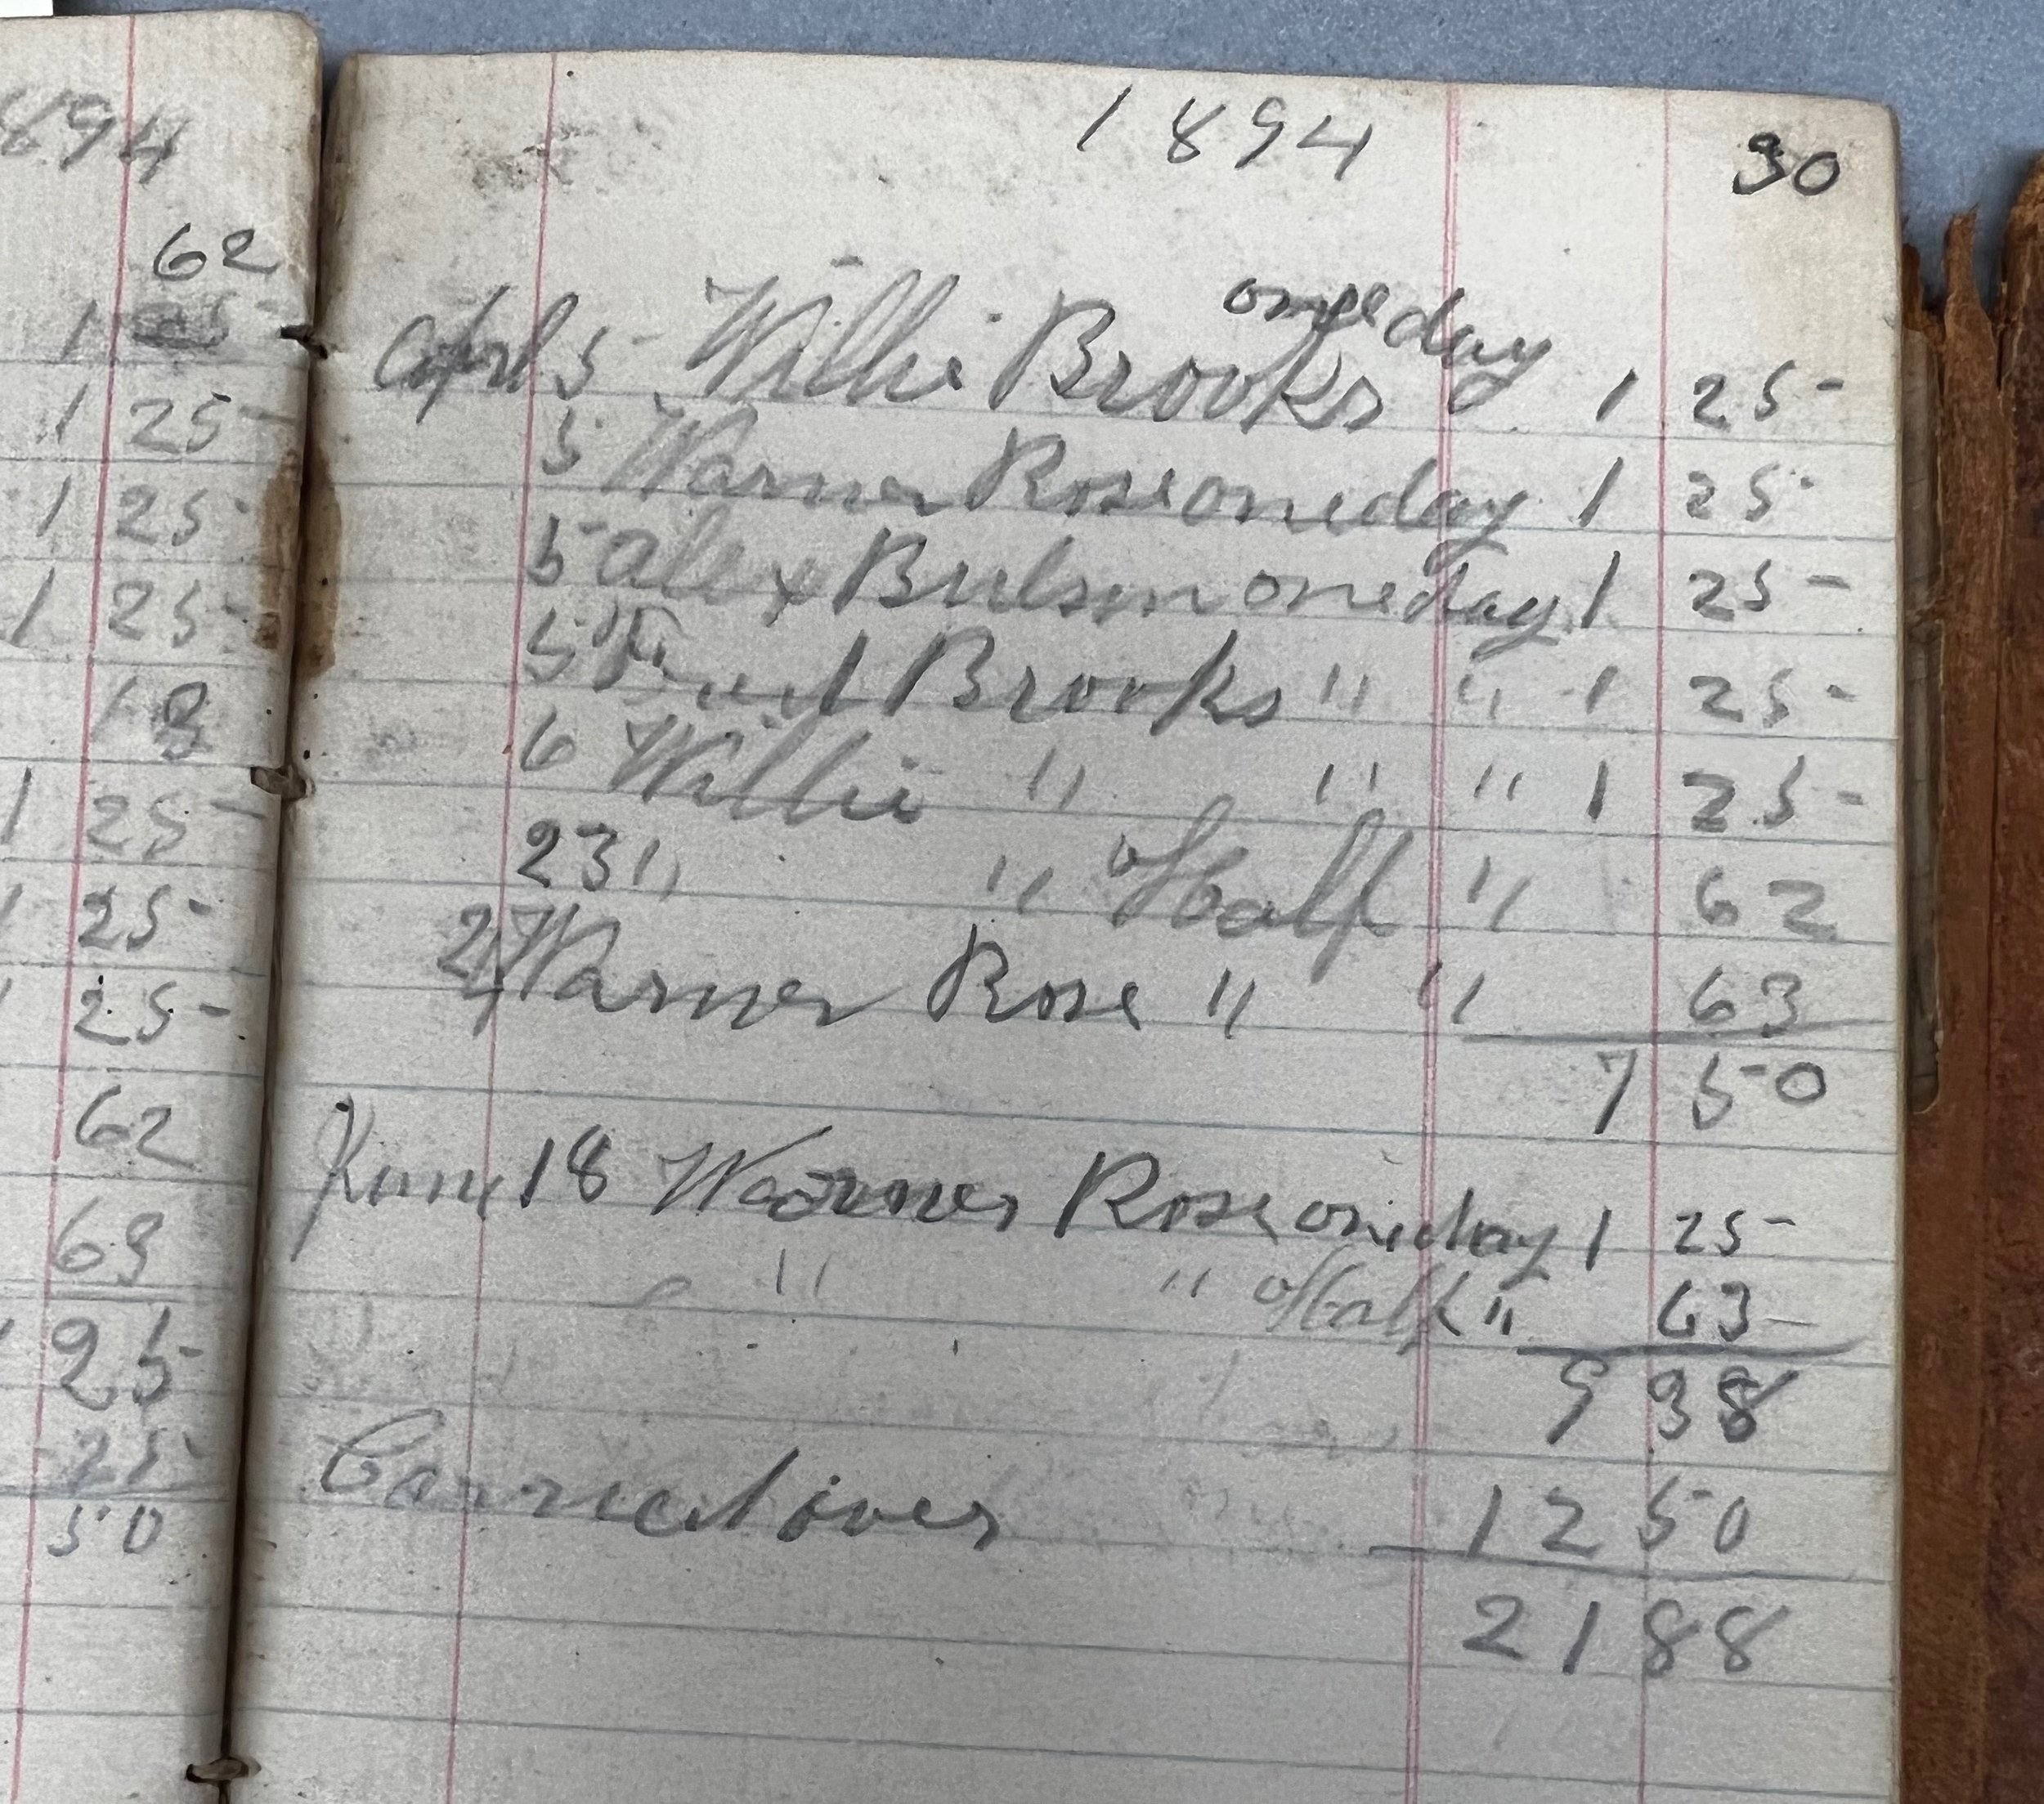 894
62
1 25
1 25
1 25
1 25
18
1 25
1 25
1 25
62
63
1 25
25
50
1894
30
one day
April 5 Willie Brooks 1 25
5 Warner Rose one day 1 25
5 Alex Bulson one day 1 25
5 Brooks " " 1 25
6 Willie " " " 1 25
23 " " Half " 62
Warner Rose " " 63
7 50
June 18 Warner Rose one day 1 25
" " Half " 63
9 38
Carried over 12 50
21 88